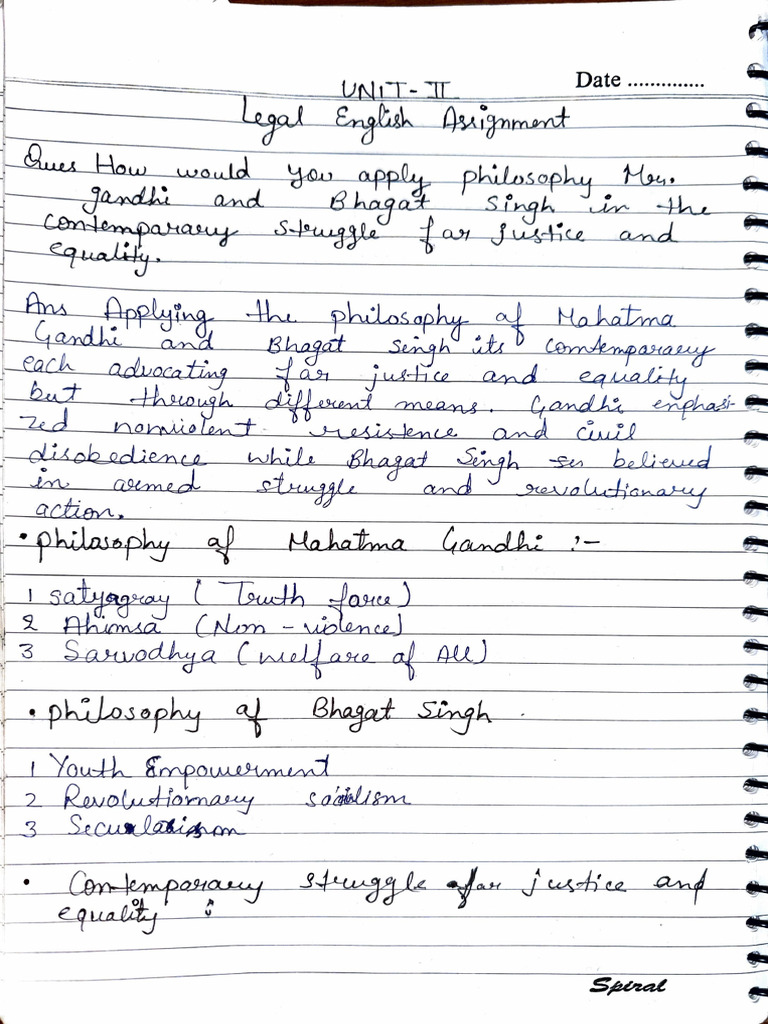 UNIT-II
Date ..............
Legal English Assignment
Ques How would you apply philosophy Mr.
gandhi and Bhagat Singh in the
contemparary struggle far justice and
equality.
Ans Applying the philosophy of Mahatma
Gandhi and Bhagat Singh its contemparary
each advocating far justice and equality
but through different means. Gandhi enphasi-
zed nonviolent resistence and civil
disobedience while Bhagat Singh believed
in armed struggle and revolutionary
action.
• philosophy of Mahatma Gandhi :-
1 satyagray (Truth farce)
2 Ahimsa (Non-violence)
3 Sarvodhya (welfare of All)
• philosophy of Bhagat Singh.
1 Youth Empowerment
2 Revolutionary socialism
3 Secularism
• Contemparary struggle far justice and
equality :
Spiral